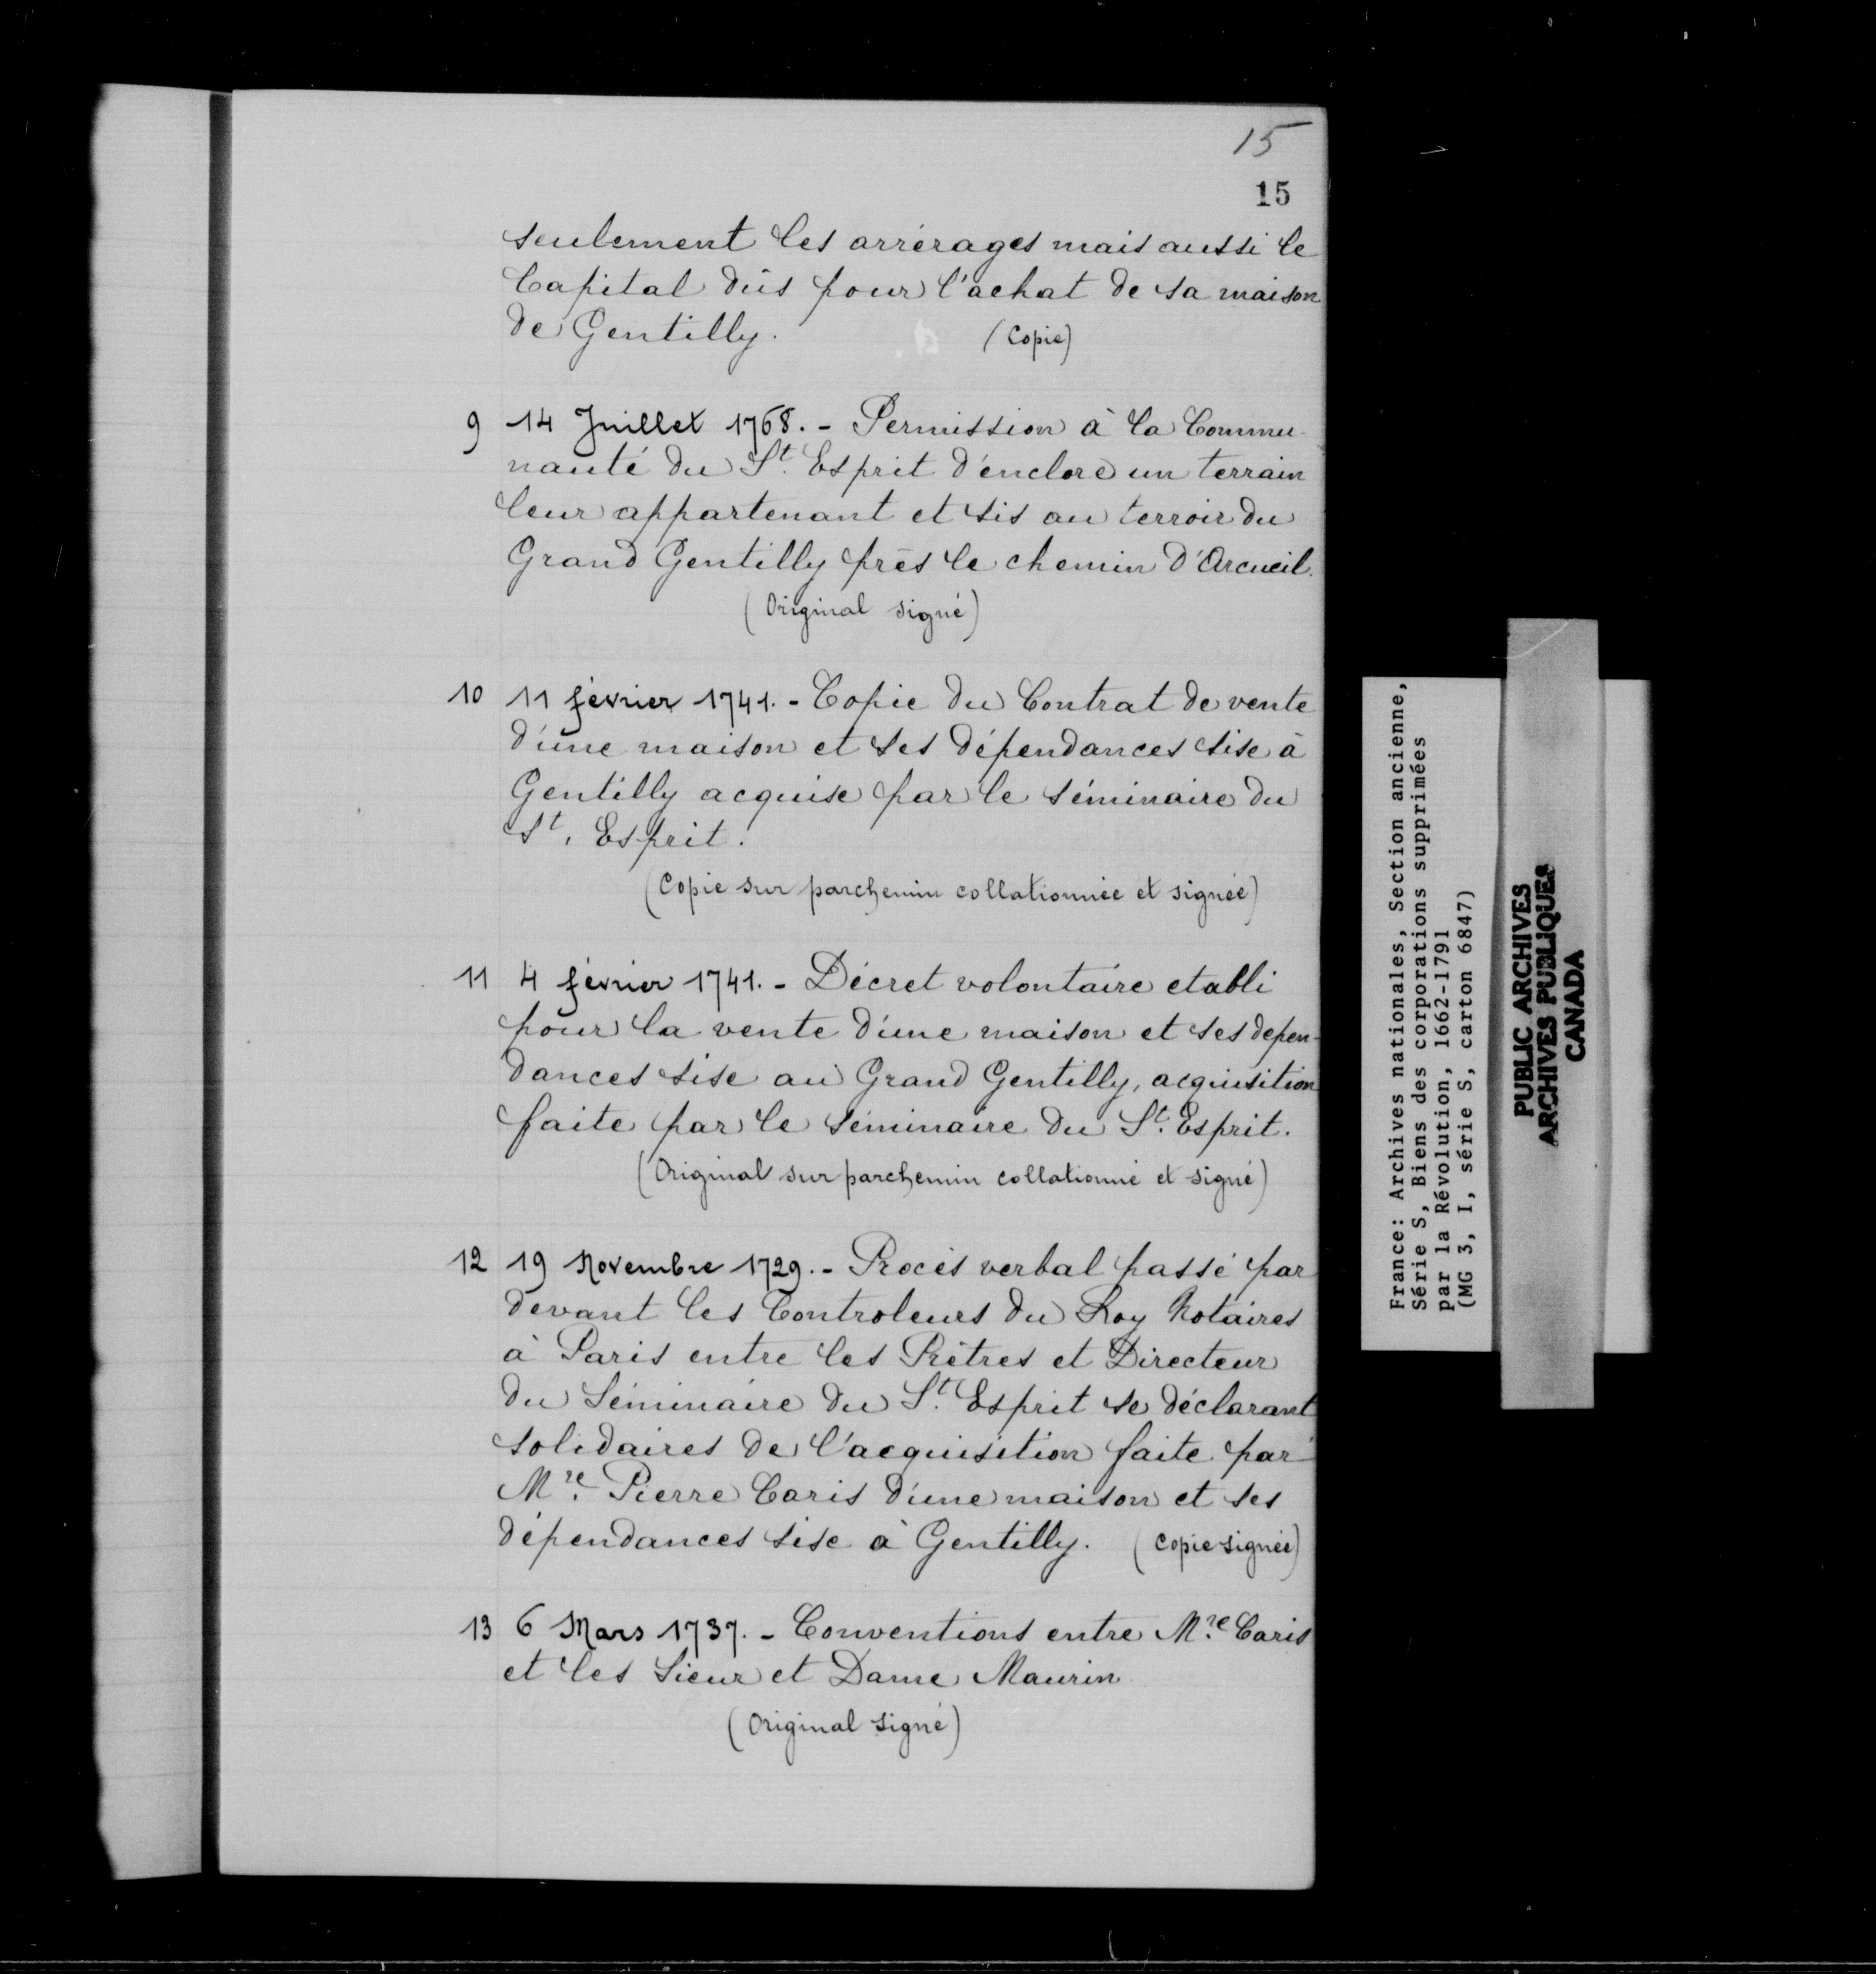 15
15
seulement les arrérages mais aussi le
Capital dûs pour l'achat de sa maison
de Gentilly. (Copie)
9 14 Juillet 1768. - Permission à la Commu-
nauté du St. Esprit d'enclore un terrain
leur appartenant et sis au terroir du
Grand Gentilly près le chemin d'Arcueil.
(Original signé)
10 11 février 1741. - Copie du Contrat de vente
d'une maison et ses dépendances sise à
Gentilly acquise par le séminaire du
St. Esprit.
(Copie sur parchemin collationnée et signée)
11 4 février 1741. - Décret volontaire etabli
pour la vente d'une maison et ses depen-
dances sise au Grand Gentilly, acquisition
faite par le séminaire du St. Esprit.
(Original sur parchemin collationné et signé)
12 19 Novembre 1729. - Procès verbal passé par
devant les Controleurs du Roy Notaires
à Paris entre les Prêtres et Directeur
du Séminaire du St. Esprit se déclarant
solidaires de l'acquisition faite par
Mre. Pierre Caris d'une maison et ses
dépendances sise à Gentilly. (Copie signée)
13 6 Mars 1737. - Conventions entre Mre. Caris
et les Sieur et Dame Maurin
(Original signé)
France: Archives nationales, Section ancienne,
Série S, Biens des corporations supprimées
par la Révolution, 1662-1791
(MG 3, I, série S, carton 6847)
PUBLIC ARCHIVES
ARCHIVES PUBLIQUES
CANADA